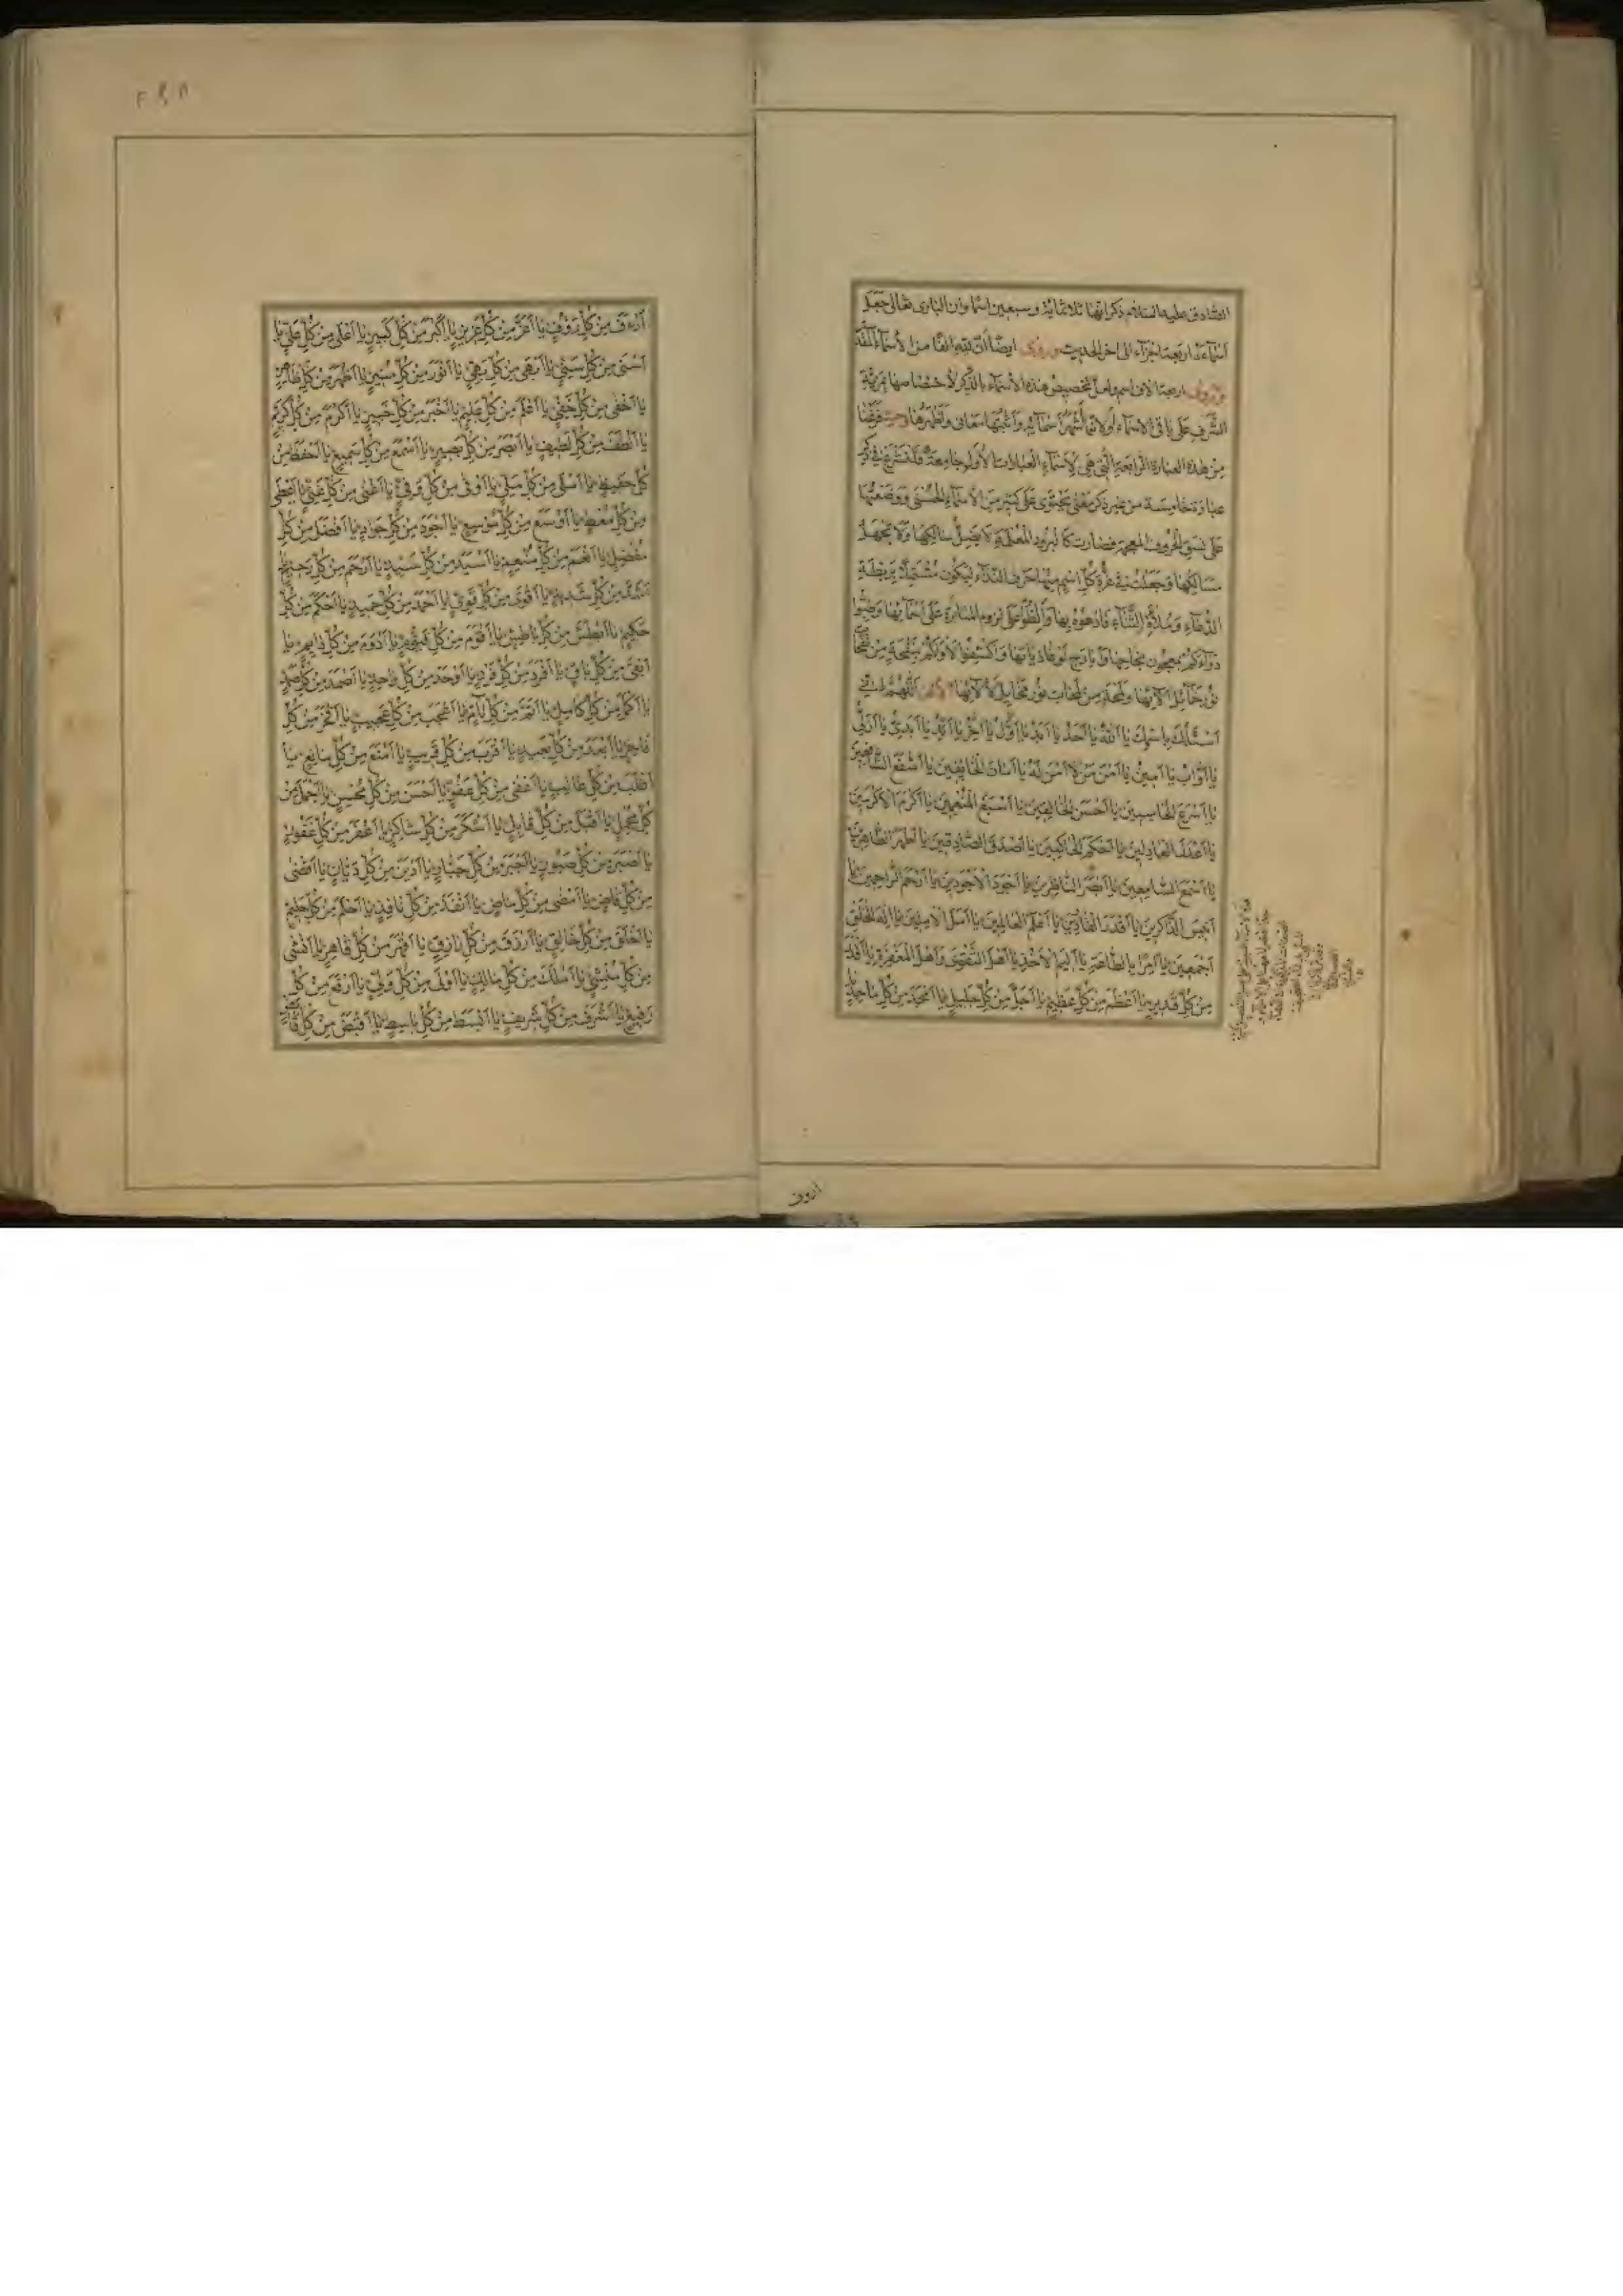 الصادق عليه السلام ذكر انها ثلاثمائة وسبعين اسما وان البارى تعالى جعل
اسماءه اربعة اجزاء الى اخر الحديث وروى ايضا ان لله الفا من الاسماء المقد
وروى اربعة الاف اسم ولعل تخصيص هذه الاسماء بالذكر لاختصاصها بمزية
الشرف على باقى الاسماء او لانها اشهر اسمائه وابينها معانى واظهرها وحيث فرغنا
من هذه العبارة الرابعة التى هى لاسماء العبارات الاول جامعة فلنشرع فى ذكر
عبارة خامسة من غير ذكر معنى يحتوى على كثير من الاسماء الحسنى ووضعتها
على نسق الحروف المعجمة فصارت كالبرود المعلمة لا يضل سالكها ولا يجهل
مسالكها وجعلت فى غرة كل اسم منها حرف النداء ليكون مشتملة بريطة
الدعاء وملاة الثناء فادعوه بها والظوا على لزوم المثابرة على اسمائها وطيبوا
نور خمائل الائها ولمحة من لمحات نور مخايل لألائها الالف اللهم انى
اسئلك باسمك يا الله يا احد يا ابد يا اول يا اخر يا ابدى يا ازلى
يا اواب يا امين يا امن من لا امن له يا امان الخائفين يا اشفع الشافعين
يا اسرع الحاسبين يا احسن الخالقين يا اسبغ المنعمين يا اكرم الاكرمين
يا اعدل العادلين يا احكم الحاكمين يا اصدق الصادقين يا اطهر الطاهرين
يا اسمع السامعين يا ابصر الناظرين يا اجود الاجودين يا ارحم الراحمين يا
انيس الذاكرين يا اقدر القادرين يا اعلم العالمين يا اله الخلق
اجمعين يا امرا بالطاعة يا اليم الاخذ يا اهل التقوى واهل المغفرة يا اقدر
من كل قدير يا اعظم من كل عظيم يا اجل من كل جليل يا امجد من كل ماجد
ارءف
ارءف من كل رؤف يا اعز من كل عزيز يا اكبر من كل كبير يا اعلى من كل على يا
اسنى من كل سنى يا ابهى من كل بهى يا انور من كل منير يا اظهر من كل ظاهر
يا اخفى من كل خفى يا اعلم من كل عليم يا اخبر من كل خبير يا اكرم من كل كريم
يا الطف من كل لطيف يا ابصر من كل بصير يا اسمع من كل سميع يا احفظ من
كل حفيظ يا املى من كل ملى يا اوفى من كل وفى يا اغنى من كل غنى يا اعطى
من كل معط يا اوسع من كل موسع يا اجود من كل جواد يا افضل من كل
مفضل يا انعم من كل منعم يا اسيد من كل سيد يا ارحم من كل رحيم يا
اشد من كل شديد يا اقوى من كل قوى يا احمد من كل حميد يا احكم من كل
حكيم يا ابطش من كل باطش يا اقوم من كل قيوم يا ادوم من كل دايم يا
ابقى من كل باق يا افرد من كل فرد يا اوحد من كل واحد يا اصمد من كل صمد
يا اكمل من كل كامل يا اتم من كل تام يا اعجب من كل عجيب يا افخر من كل
فاخر يا ابعد من كل بعيد يا اقرب من كل قريب يا امنع من كل مانع يا
اغلب من كل غالب يا اعفى من كل عفو يا احسن من كل محسن يا اجمل من
كل مجمل يا اقبل من كل قابل يا اشكر من كل شاكر يا اغفر من كل غفور
يا اصبر من كل صبور يا اجبر من كل جبار يا ادين من كل ديان يا اقضى
من كل قاض يا امضى من كل ماض يا انفذ من كل نافذ يا احلم من كل حليم
يا اخلق من كل خالق يا ارزق من كل رازق يا اقهر من كل قاهر يا انشى
من كل منشى يا املك من كل مالك يا اولى من كل ولى يا ارفع من كل
رفيع يا اشرف من كل شريف يا ابسط من كل باسط يا اقبض من كل قابض